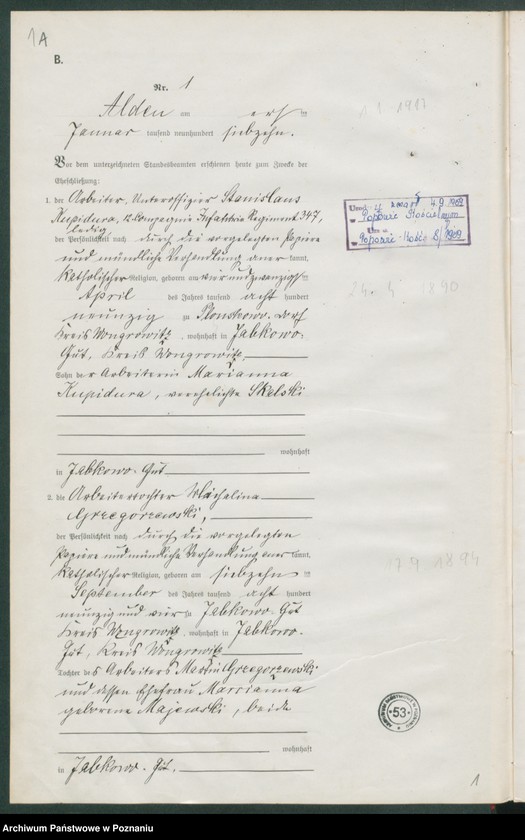 1A
B.
Nr. 1
Alden am ersten
1 1 1917
Januar tausend neunhundert siebzehn.
Vor dem unterzeichneten Standesbeamten erschienen heute zum Zwecke der
Eheschließung:
1. der Arbeiter, Unteroffizier Stanislaus
Kupidura, 12. Kompagnie Infanterie Regiment 347,
ledig
der Persönlichkeit nach durch die vorgelegten Papiere
und mündliche Verhandlung anerkannt,
katholischer Religion, geboren am vierundzwanzigsten
24. 4 1890
April des Jahres tausend acht hundert
neunzig zu Dorf
Kreis Wongrowitz, wohnhaft in Jabkowo-
Gut, Kreis Wongrowitz
Sohn der Arbeiterin Marianna
Kupidura, verehelichte Skelski
wohnhaft
in Jabkowo-Gut
2. die Arbeitertochter
Grzegorzewski,
der Persönlichkeit nach durch die vorgelegten
Papiere und mündliche Verhandlung anerkannt,
katholischer Religion, geboren am siebzehnten
17 9 1894
September des Jahres tausend acht hundert
neunzig und vier zu Jabkowo-Gut
Kreis Wongrowitz, wohnhaft in Jabkowo-
Gut, Kreis Wongrowitz
Tochter des Arbeiters Martin Grzegorzewski
und dessen Ehefrau Marianna
geborene Majewski, beide
wohnhaft
in Jabkowo-Gut.
53
1
Archiwum Państwowe w Poznaniu